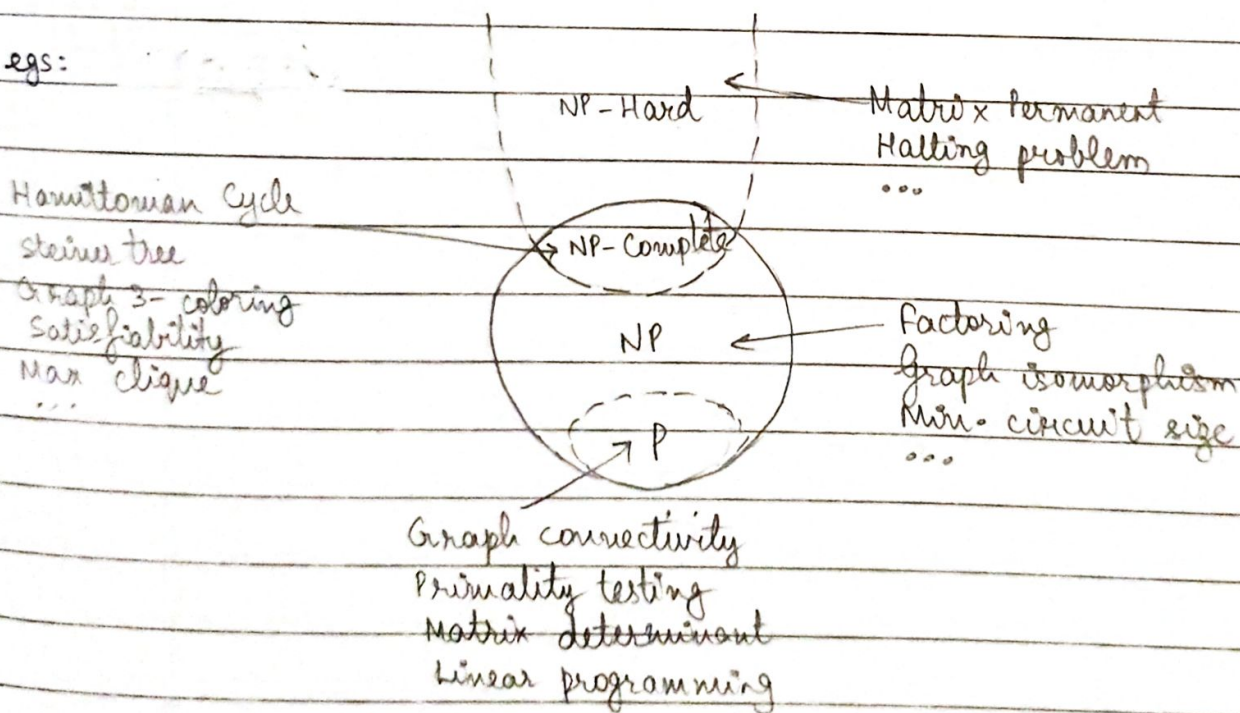 egs:
NP-Hard
Matrix Permanent
Halting problem
...
Hamiltonian Cycle
Steiner tree
Graph 3-coloring
Satisfiability
Max clique
...
NP-Complete
NP
Factoring
Graph isomorphism
Min. circuit size
...
P
Graph connectivity
Primality testing
Matrix determinant
Linear programming